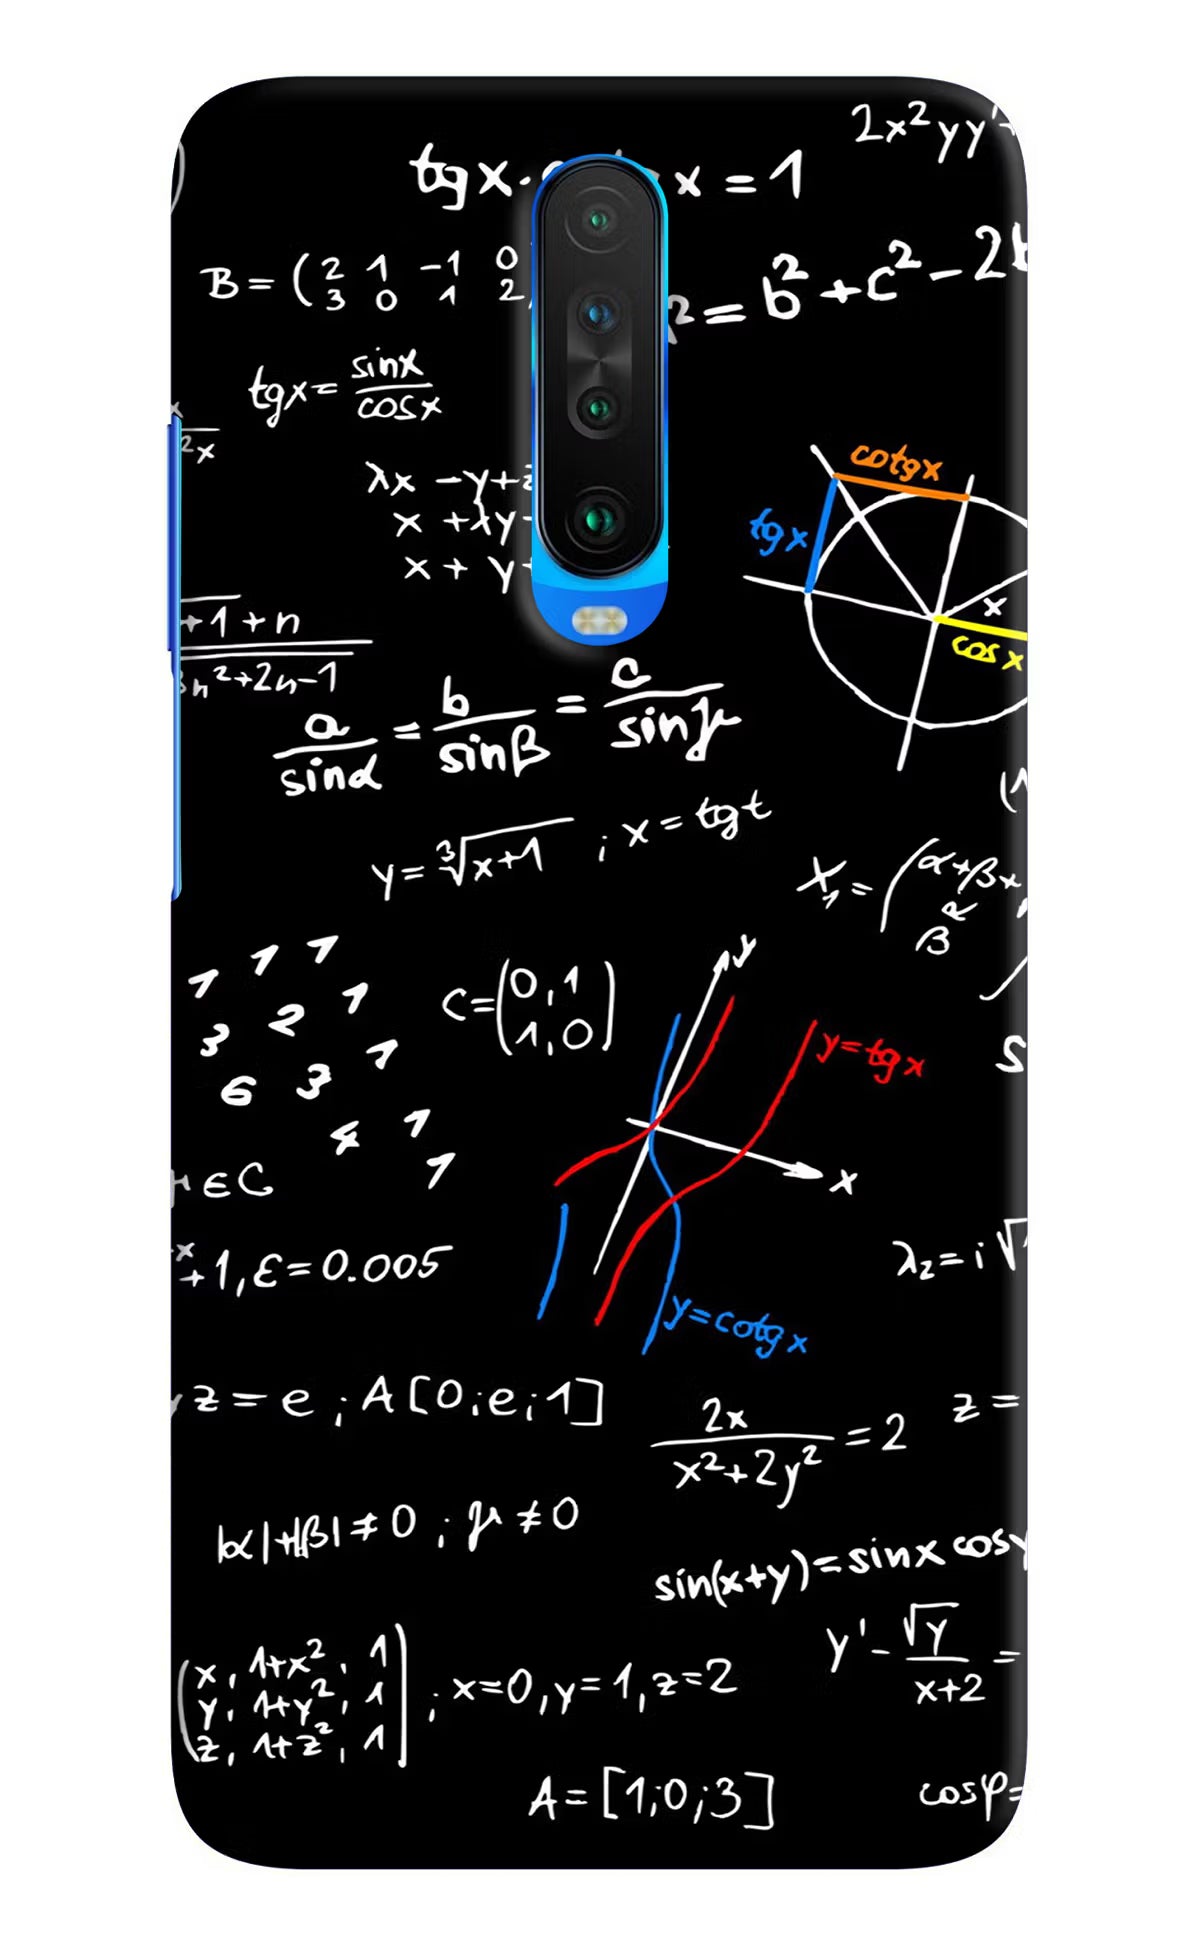 2x²yy'
tgx· x = 1
B = (2 1 -1 0
3 0 1 2
² = b² + c² - 2
tgx = sinx / cosx
2x
cotgx
tgx
x
cosx
λx - y +
x + λy -
x + y +
+1 + n
n² + 2n - 1
a / sinα = b / sinβ = c / sinμ
y = ∛x+1 ; x = tgt
X₁ = (α + β +
β
1 1 1
3 2 1
6 3 1
4 1
1
C = (0, 1
1, 0)
y
y = tgx
x
y = cotgx
∈ C
x
+ 1, ε = 0.005
λ₂ = i√
z = e ; A[0; e; 1]
2x / x² + 2y² = 2
z =
|α| + |β| ≠ 0 ; μ ≠ 0
sin(x+y) = sinx cosy
y' - √y / x+2 =
(x, 1+x², 1
y, 1+y², 1
z, 1+z², 1) ; x=0, y=1, z=2
A = [1; 0; 3]
cosφ =